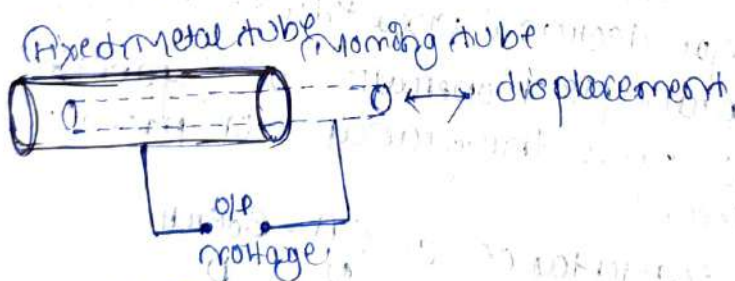 Fixed metal tube Moving tube
displacement,
O/P
voltage,